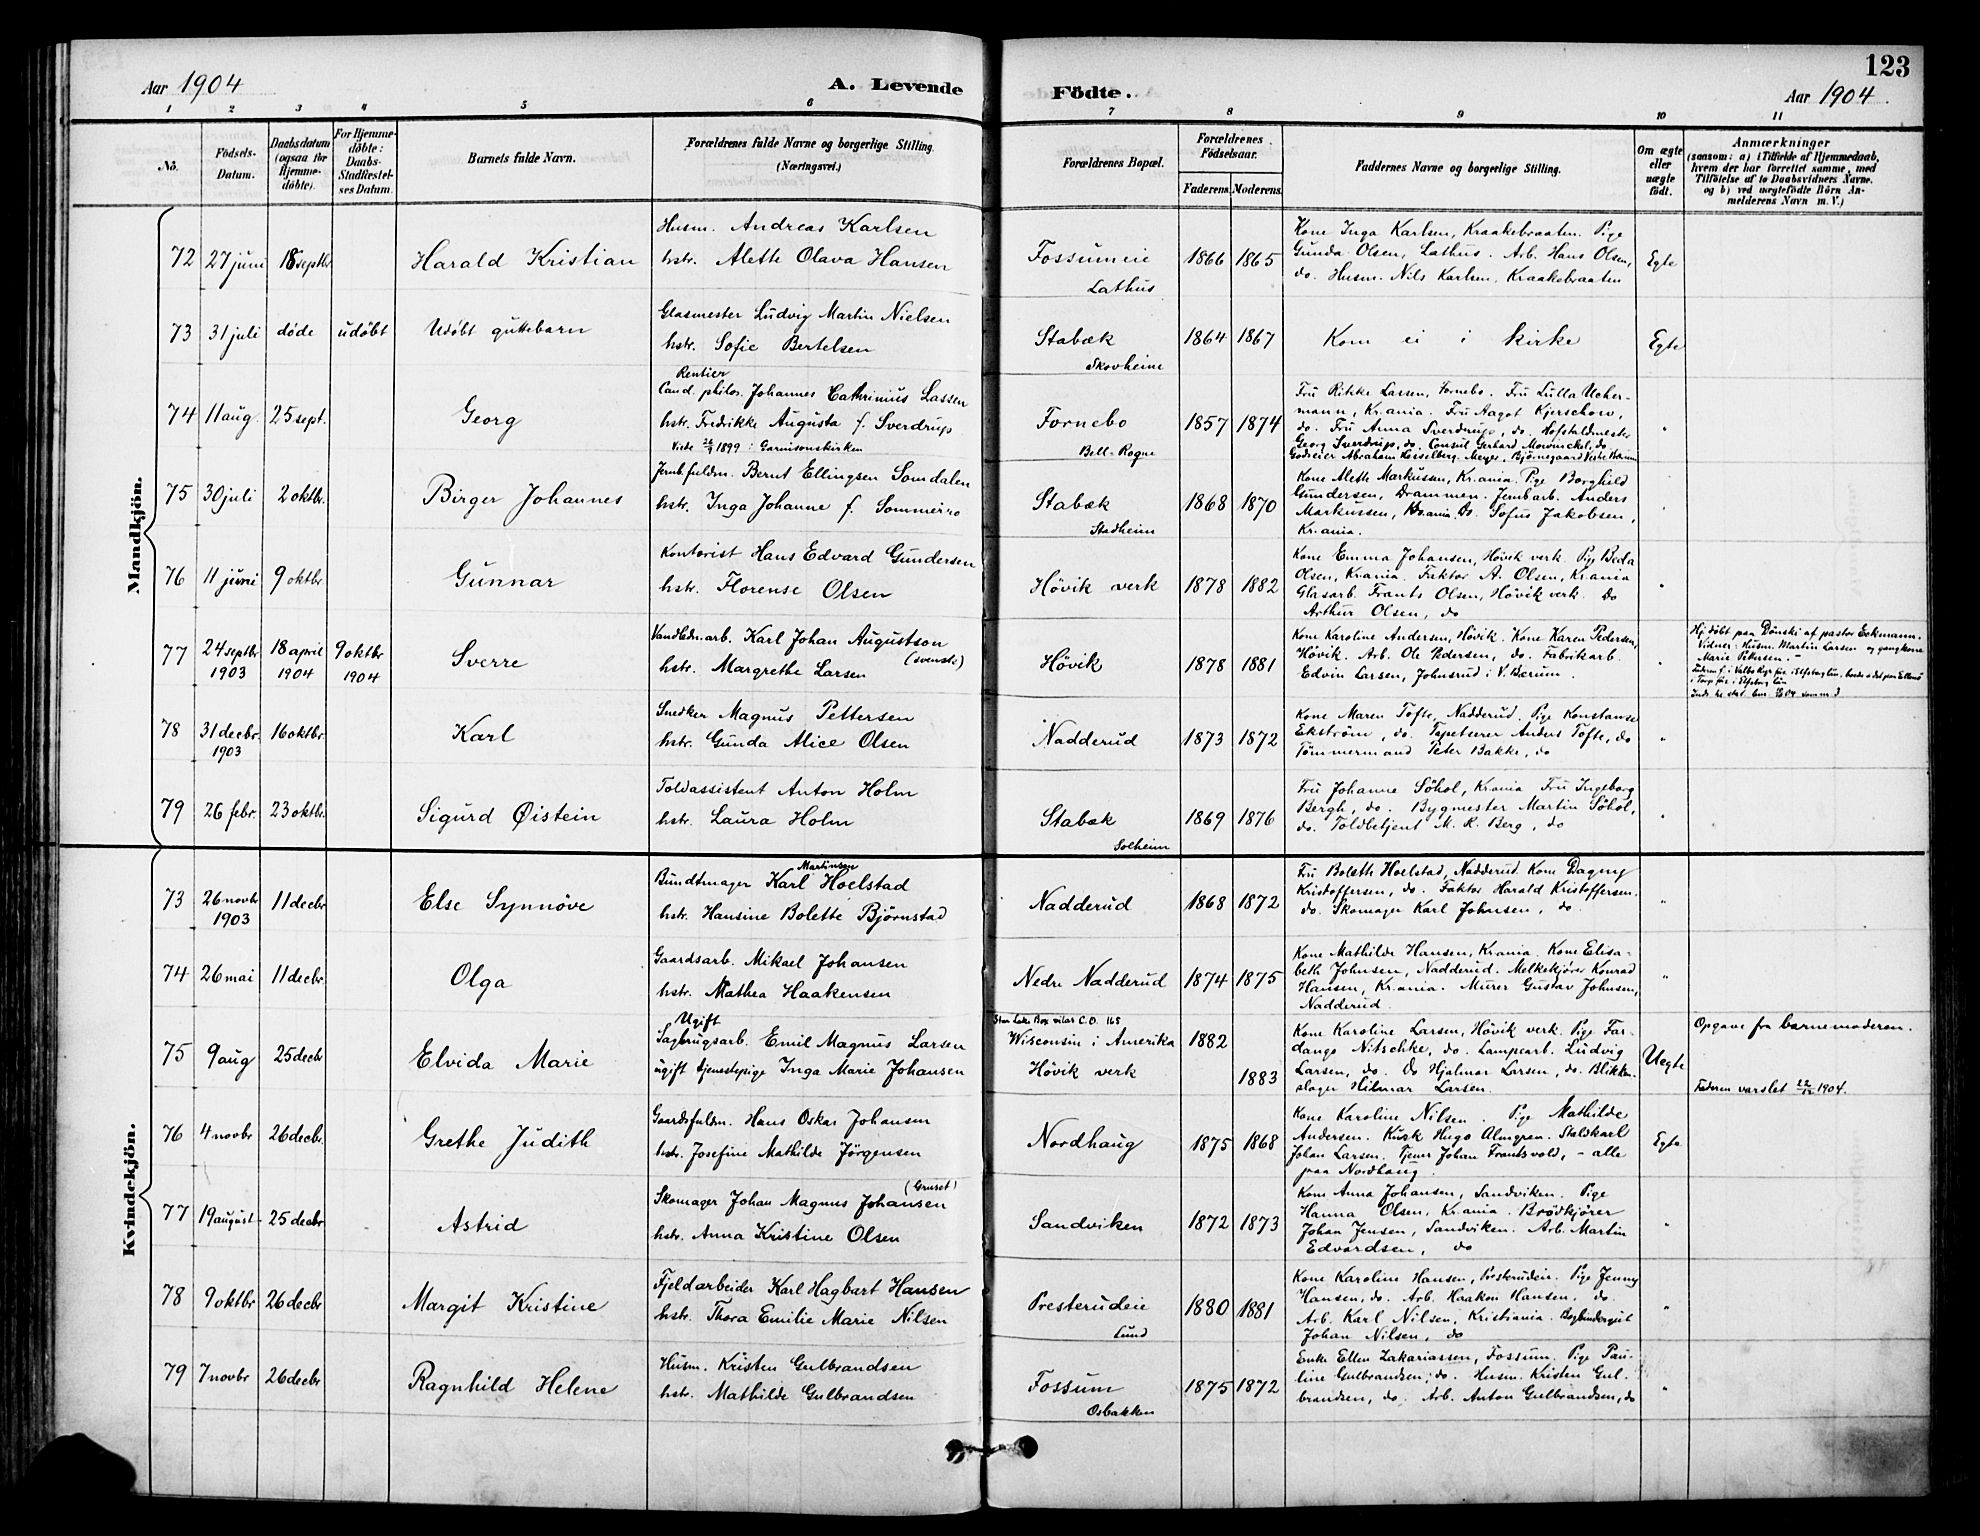 123
Aar 1904
A. Levende
Födte.
Aar 1904.
1 2 3 4 5 6 7 8 9 10 11
No.
Födsels-
Datum.
Daabsdatum
(ogsaa for
Hjemme-
döbte).
For Hjemme-
döbte:
Daabs-
Stadfæstel-
ses Datum.
Barnets fulde Navn.
Forældrenes fulde Navne og borgerlige Stilling.
(Næringsvei.)
Forældrenes Bopæl.
Forældrenes
Födselsaar.
Faderens.
Moderens.
Faddernes Navne og borgerlige Stilling.
Om ægte
eller
uægte
født.
Anmærkninger
(saasom: a) i Tilfælde af Hjemmedaab,
hvem der har forrettet samme, med
Tilföielse af to Daabsvidners Navne.
og b) ved uægtefödte Börn An-
melderens Navn m. V.)
Mandkjön.
72 27 juni 18 septbr Harald Kristian
Husm. Andreas Karlsen
hstr. Alette Olava Hansen
Fossumeie
Lathus
1866 1865
Kone Inga Karlsen, Kraakebraaten. Pige
Gunda Olsen, Lathus. Arb. Hans Olsen,
do. Husm. Nils Karlsen, Kraakebraaten
Egte
73 31 juli døde udøbt Udøbt guttebarn
Glasmester Ludvig Martin Nielsen
hstr. Sofie Bertelsen
Stabæk
Skovheim
1864 1867
Kom ei i kirke
Egte
74 11 aug. 25 sept. Georg
Rentier
Cand. philos. Johannes Cathrinius Lassen
hstr. Fredrikke Augusta f. Sverdrup
Viede 1899 : Garnisonskirken
Fornebo
Bell-Rogne
1857 1874
Fru Rikke Larsen, Fornebo. Fru Lulla Ucher-
mann, Kr.ania. Fru Aagot Kjerschow,
do. Fru Anna Sverdrup, do. Hofstaldmester
Georg Sverdrup, do. Consul Gerhard Mowinckel, do
Godseier Abraham Hesselberg-Meyer, Bjørnegaard Vestre Bærum
"
75 30 juli 2 oktbr. Birger Johannes
Jernb.fuldm. Bernt Ellingsen Somdalen
hstr. Inga Johanne f. Sommeiro
Stabæk
Stadheim
1868 1870
Kone Aleth Markussen, Kr.ania. Pige Borghild
Gundersen, Drammen. Jernb.arb. Anders
Markussen, Kr.ania. Do. Sofus Jakobsen,
Kr.ania.
76 11 juni 9 oktbr. Gunnar
Kontorist Hans Edvard Gundersen
hstr. Florense Olsen
Hövik verk
1878 1882
Kone Emma Johansen, Hövik verk. Pige Beda
Olsen, Kr.ania. Faktor A. Olsen, Kr.ania
Glasarb. Frants Olsen, Hövik verk. Do
Arthur Olsen, do
"
77 24 septbr 1903 18 april 1904 9 oktbr 1904 Sverre
Vandledn.arb. Karl Johan Augustson
(svensk)
hstr. Margrethe Larsen
Hövik
1878 1881
Kone Karoline Andersen, Hövik. Kone Karen Pedersen,
Hövik. Arb. Ole Pedersen, do. Fabrikarb.
Edvin Larsen, Johnsrud i V. Bærum.
"
Hj.döbt paa Dönski af pastor Eckmann.
Vidner: Husm. Martin Larsen og gangkone
Marie Pettersen. -
78 31 decbr. 1903 16 oktbr. Karl
Snedker Magnus Pettersen
hstr. Gunda Alice Olsen
Nadderud
1873 1872
Kone Maren Tofte, Nadderud. Pige Konstanse
Ekström, do. Tapetserer Anders Tofte, do
Tömmermand Peter Bakke, do
"
79 26 febr. 23 oktbr. Sigurd Øistein
Toldassistent Anton Holm
hstr. Laura Holm
Stabæk
Solheim
1869 1876
Fru Johanne Söhol, Kr.ania Fru Ingeborg
Bergh, do. Bygmester Martin Söhol,
do. Toldbetjent M. K. Berg, do
"
Kvindekjön.
73 26 novbr 1903 11 decbr Else Synnöve
Martinsen
Bundtmager Karl Hoelstad
hstr. Hansine Bolette Björnstad
Nadderud
1868 1872
Fru Boleth Hoelstad, Nadderud. Kone Dagny
Kristoffersen, do. Faktor Harald Kristoffersen,
do. Skomager Karl Johnsen, do.
"
74 26 mai 11 decbr. Olga
Gaardsarb. Mikael Johansen
hstr. Mathea Haakensen
Nedre Nadderud
1874 1875
Kone Mathilde Hansen, Kr.ania. Kone Elisa-
beth Johnsen, Nadderud. Melkekjører Konrad
Hansen, Kr.ania. Murer Gustav Johnsen,
Nadderud
"
75 9 aug 25 decbr Elvida Marie
Ugift
Sagbrugsarb. Emil Magnus Larsen
ugift tjenestepige Inga Marie Johansen
Star Lake Box vilas C.O. 165
Wisconsin i Amerika
Hövik verk
1882
1883
Kone Karoline Larsen, Hövik verk. Pige Far-
dange Nitschke, do. Lampearb. Ludvig
Larsen, do. Do Hjalmar Larsen, do. Blikken-
slager Hilmar Larsen.
Uegte
Opgave fra barnemoderen.
Faderen varslet 22/12 1904.
76 4 novbr 26 decbr. Grethe Judith
Gaardsfuldm. Hans Oskar Johansen
hstr. Josefine Mathilde Jörgensen
Nordhaug
1875 1868
Kone Karoline Nilsen. Pige Mathilde
Andersen. Kusk Hugo Almgren. Staldkarl
Johan Larsen. Tjener Johan Frantsvold, - alle
paa Nordhaug
Egte
77 19 august 25 decbr Astrid
Skomager Johan Magnus Johansen
(Gruset)
hstr. Anna Kristine Olsen
Sandviken
1872 1873
Kone Anna Johansen, Sandviken. Pige
Hanna Olsen, Kr.ania. Brödkjörer
Johan Jensen, Sandviken. Arb. Martin
Edvardsen, do
"
78 9 oktbr 26 decbr Margit Kristine
Fjeldarbeider Karl Hagbert Hansen
hstr. Thora Emilie Marie Nilsen
Presterudeie
Lund
1880 1881
Kone Karoline Hansen, Presterudeie. Pige Jenny
Hansen, do. Arb. Haakon Hansen, do.
Arb. Karl Nilsen, Kristiania. Bogbindergut
Johan Nilsen, do
"
79 7 novbr 26 decbr Ragnhild Helene
Husm. Kristen Gulbrandsen
hstr. Mathilde Gulbrandsen
Fossum
Osbakken
1875 1872
Enke Ellen Zakariassen, Fossum. Pige Pau-
line Gulbrandsen, do. Husm. Kristen Gul-
brandsen, do. Arb. Anton Gulbrandsen, do
"